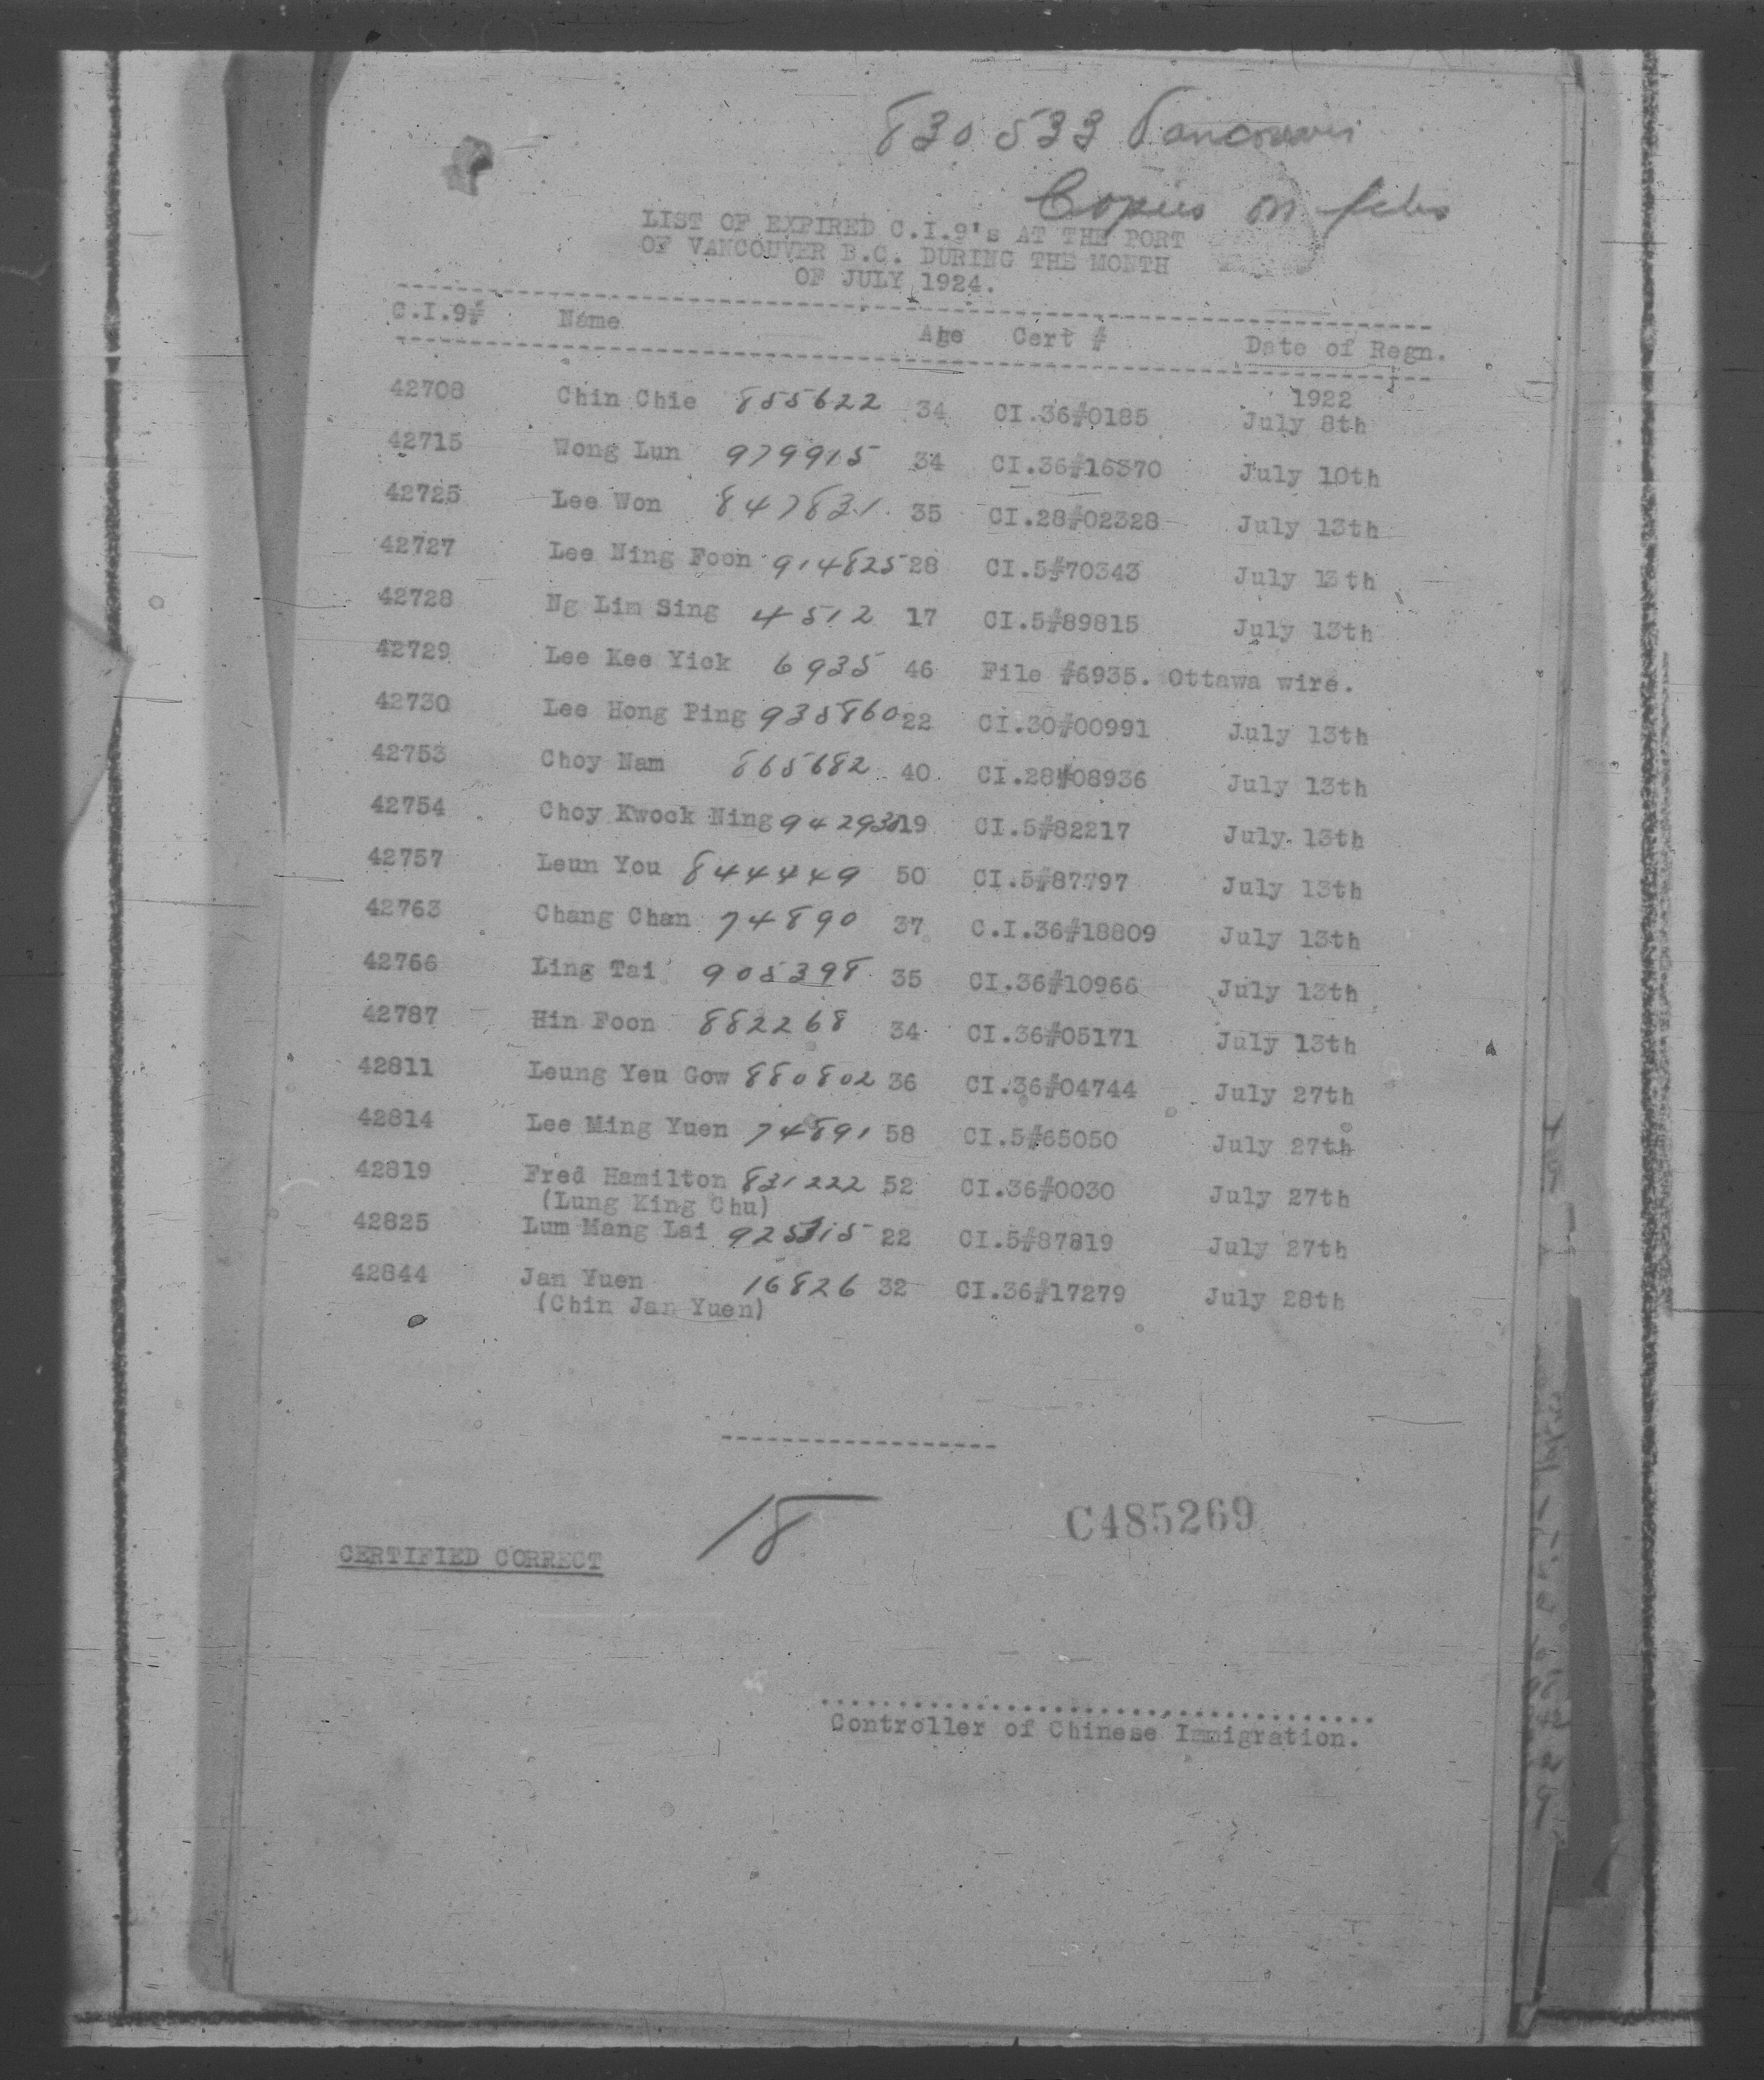 830533 Vancouver
Copies on files
LIST OF EXPIRED C.I.9's AT THE PORT
OF VANCOUVER B.C. DURING THE MONTH
OF JULY 1924.
C.I.9# Name Age Cert # Date of Regn.
1922
42708 Chin Chie 855622 34 CI.36#0185 July 8th
42715 Wong Lun 979915 34 CI.36#16370 July 10th
42725 Lee Won 847831 35 CI.28#02328 July 13th
42727 Lee Ning Foon 914825 28 CI.5#70343 July 13th
42728 Ng Lim Sing 4512 17 CI.5#89815 July 13th
42729 Lee Kee Yick 6935 46 File #6935. Ottawa wire.
42730 Lee Hong Ping 935860 22 CI.30#00991 July 13th
42753 Choy Nam 865682 40 CI.28#08936 July 13th
42754 Choy Kwock Ning 19 CI.5#82217 July 13th
42757 Leun You 844449 50 CI.5#87797 July 13th
42763 Chang Chan 74890 37 C.I.36#18809 July 13th
42766 Ling Tai 905398 35 CI.36#10966 July 13th
42787 Hin Foon 882268 34 CI.36#05171 July 13th
42811 Leung Yeu Gow 880802 36 CI.36#04744 July 27th
42814 Lee Ming Yuen 74891 58 CI.5#65050 July 27th
42819 Fred Hamilton 831222 52 CI.36#0030 July 27th
(Lung King Chu)
42825 Lum Mang Lai 925315 22 CI.5#87819 July 27th
42844 Jan Yuen 16826 32 CI.36#17279 July 28th
(Chin Jan Yuen)
18
C485269
CERTIFIED CORRECT
Controller of Chinese Immigration.